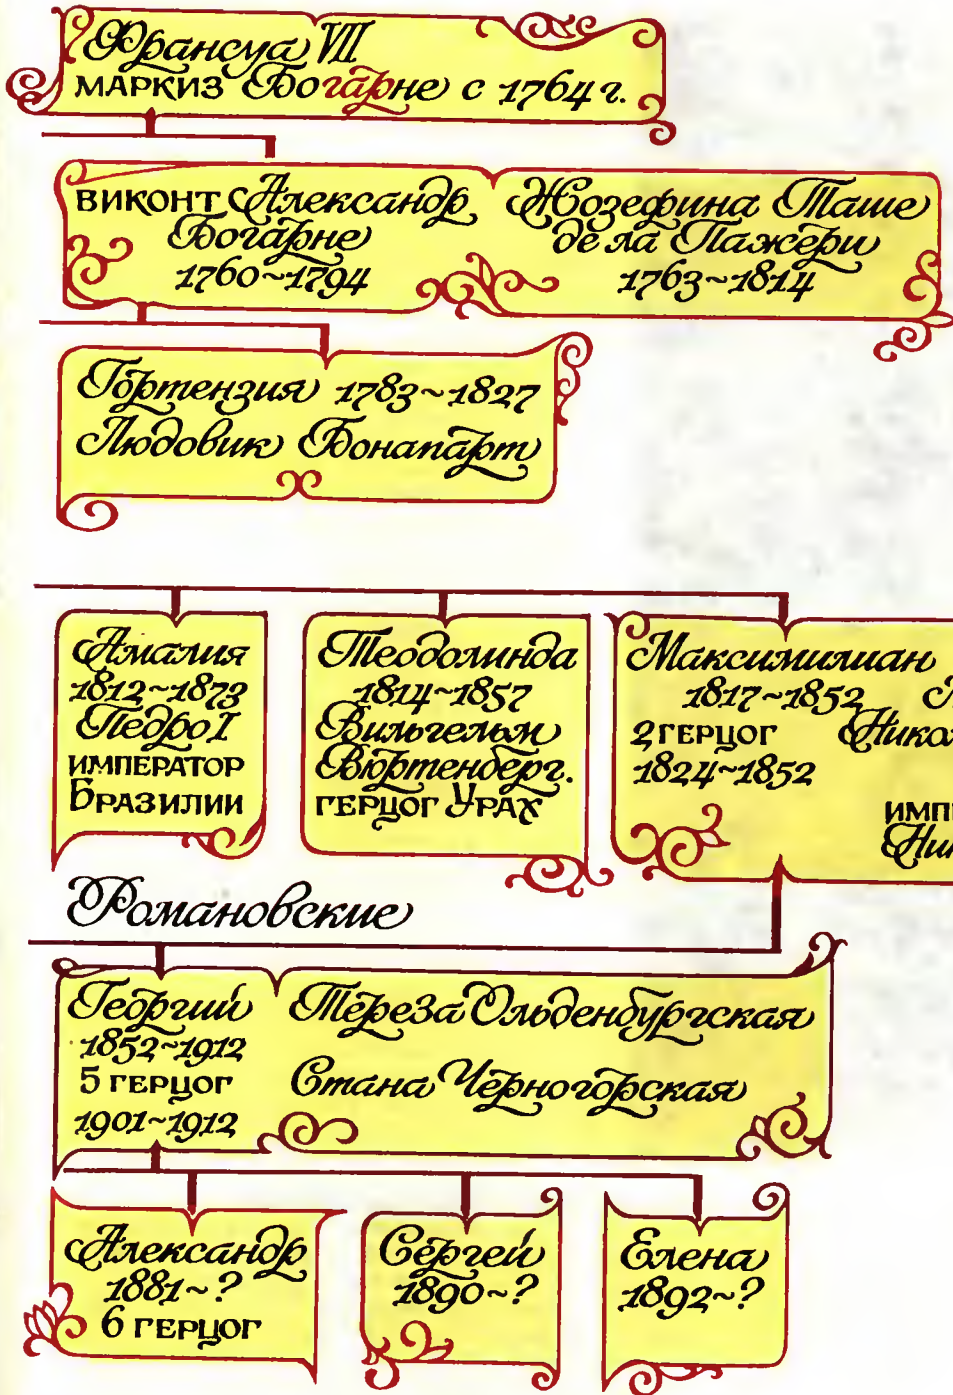 Франсуа VII
маркиз Богарне с 1764 г.
виконт Александр
Богарне
1760~1794
Жозефина Таше
де ла Пажери
1763~1814
Гортензия 1783~1827
Людовик Бонапарт
Амалия
1812~1873
Педро I
император
Бразилии
Теодолинда
1814~1857
Вильгельм
Вюртенберг.
герцог Урах
Максимилиан
1817~1852
2 герцог
1824~1852
Романовские
Георгий
1852~1912
5 герцог
1901~1912
Тереза Ольденбургская
Стана Черногорская
Александр
1881~?
6 герцог
Сергей
1890~?
Елена
1892~?